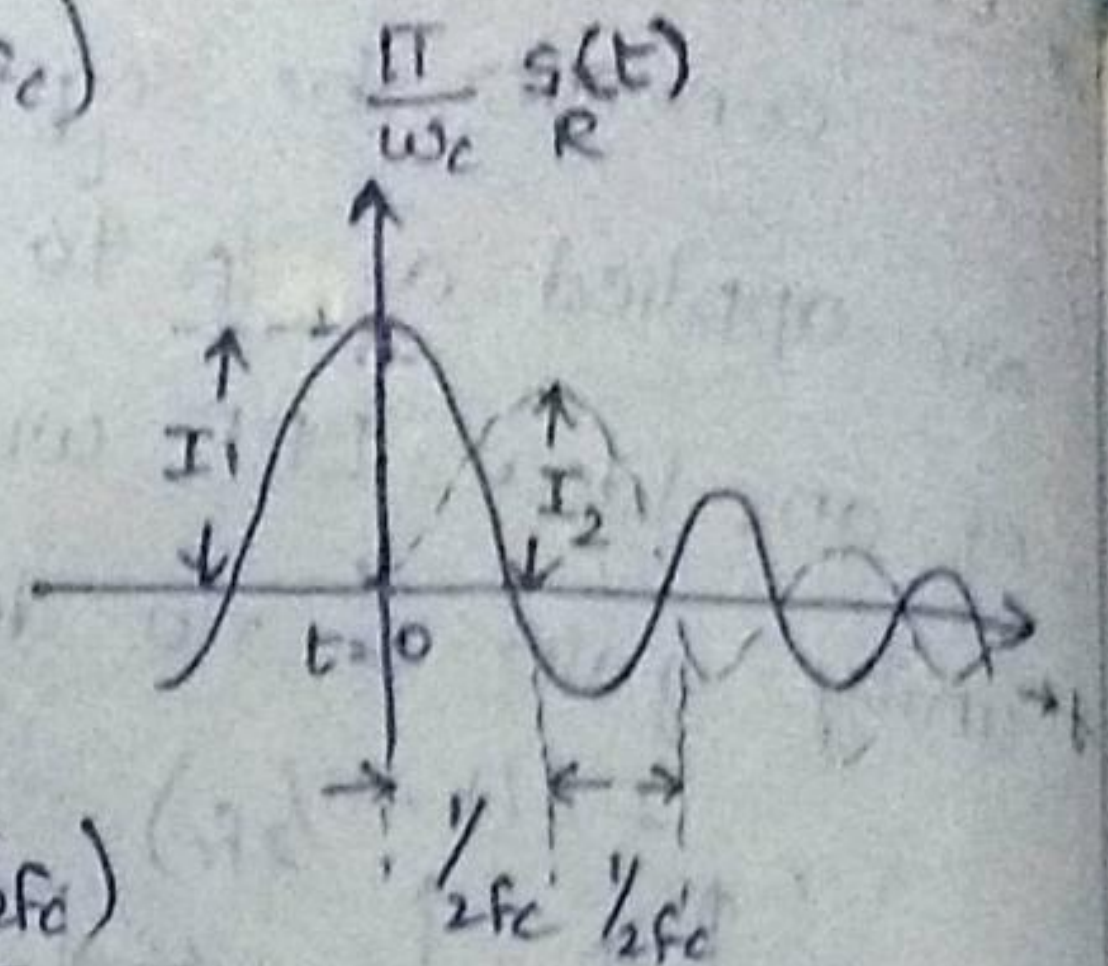 c)
Π/ωc s(t)/R
I1
I2
t=0
→t
1/2fc 1/2fc
2fc)